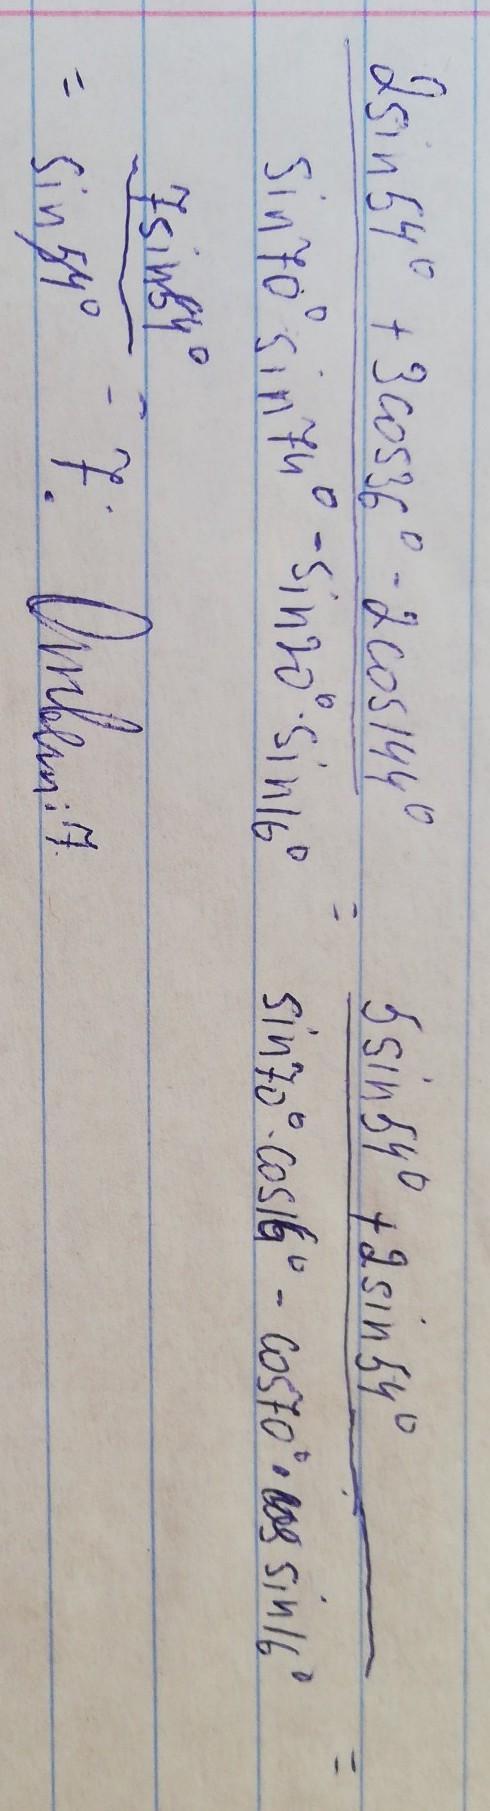 2sin54° + 3cos36° - 2cos144°
sin70° · sin74° - sin20° · sin16°
=
5sin54° + 2sin54°
sin70° · cos16° - cos70° · sin16°
=
= 7sin54°
sin54°
= 7. Ответ: 7.